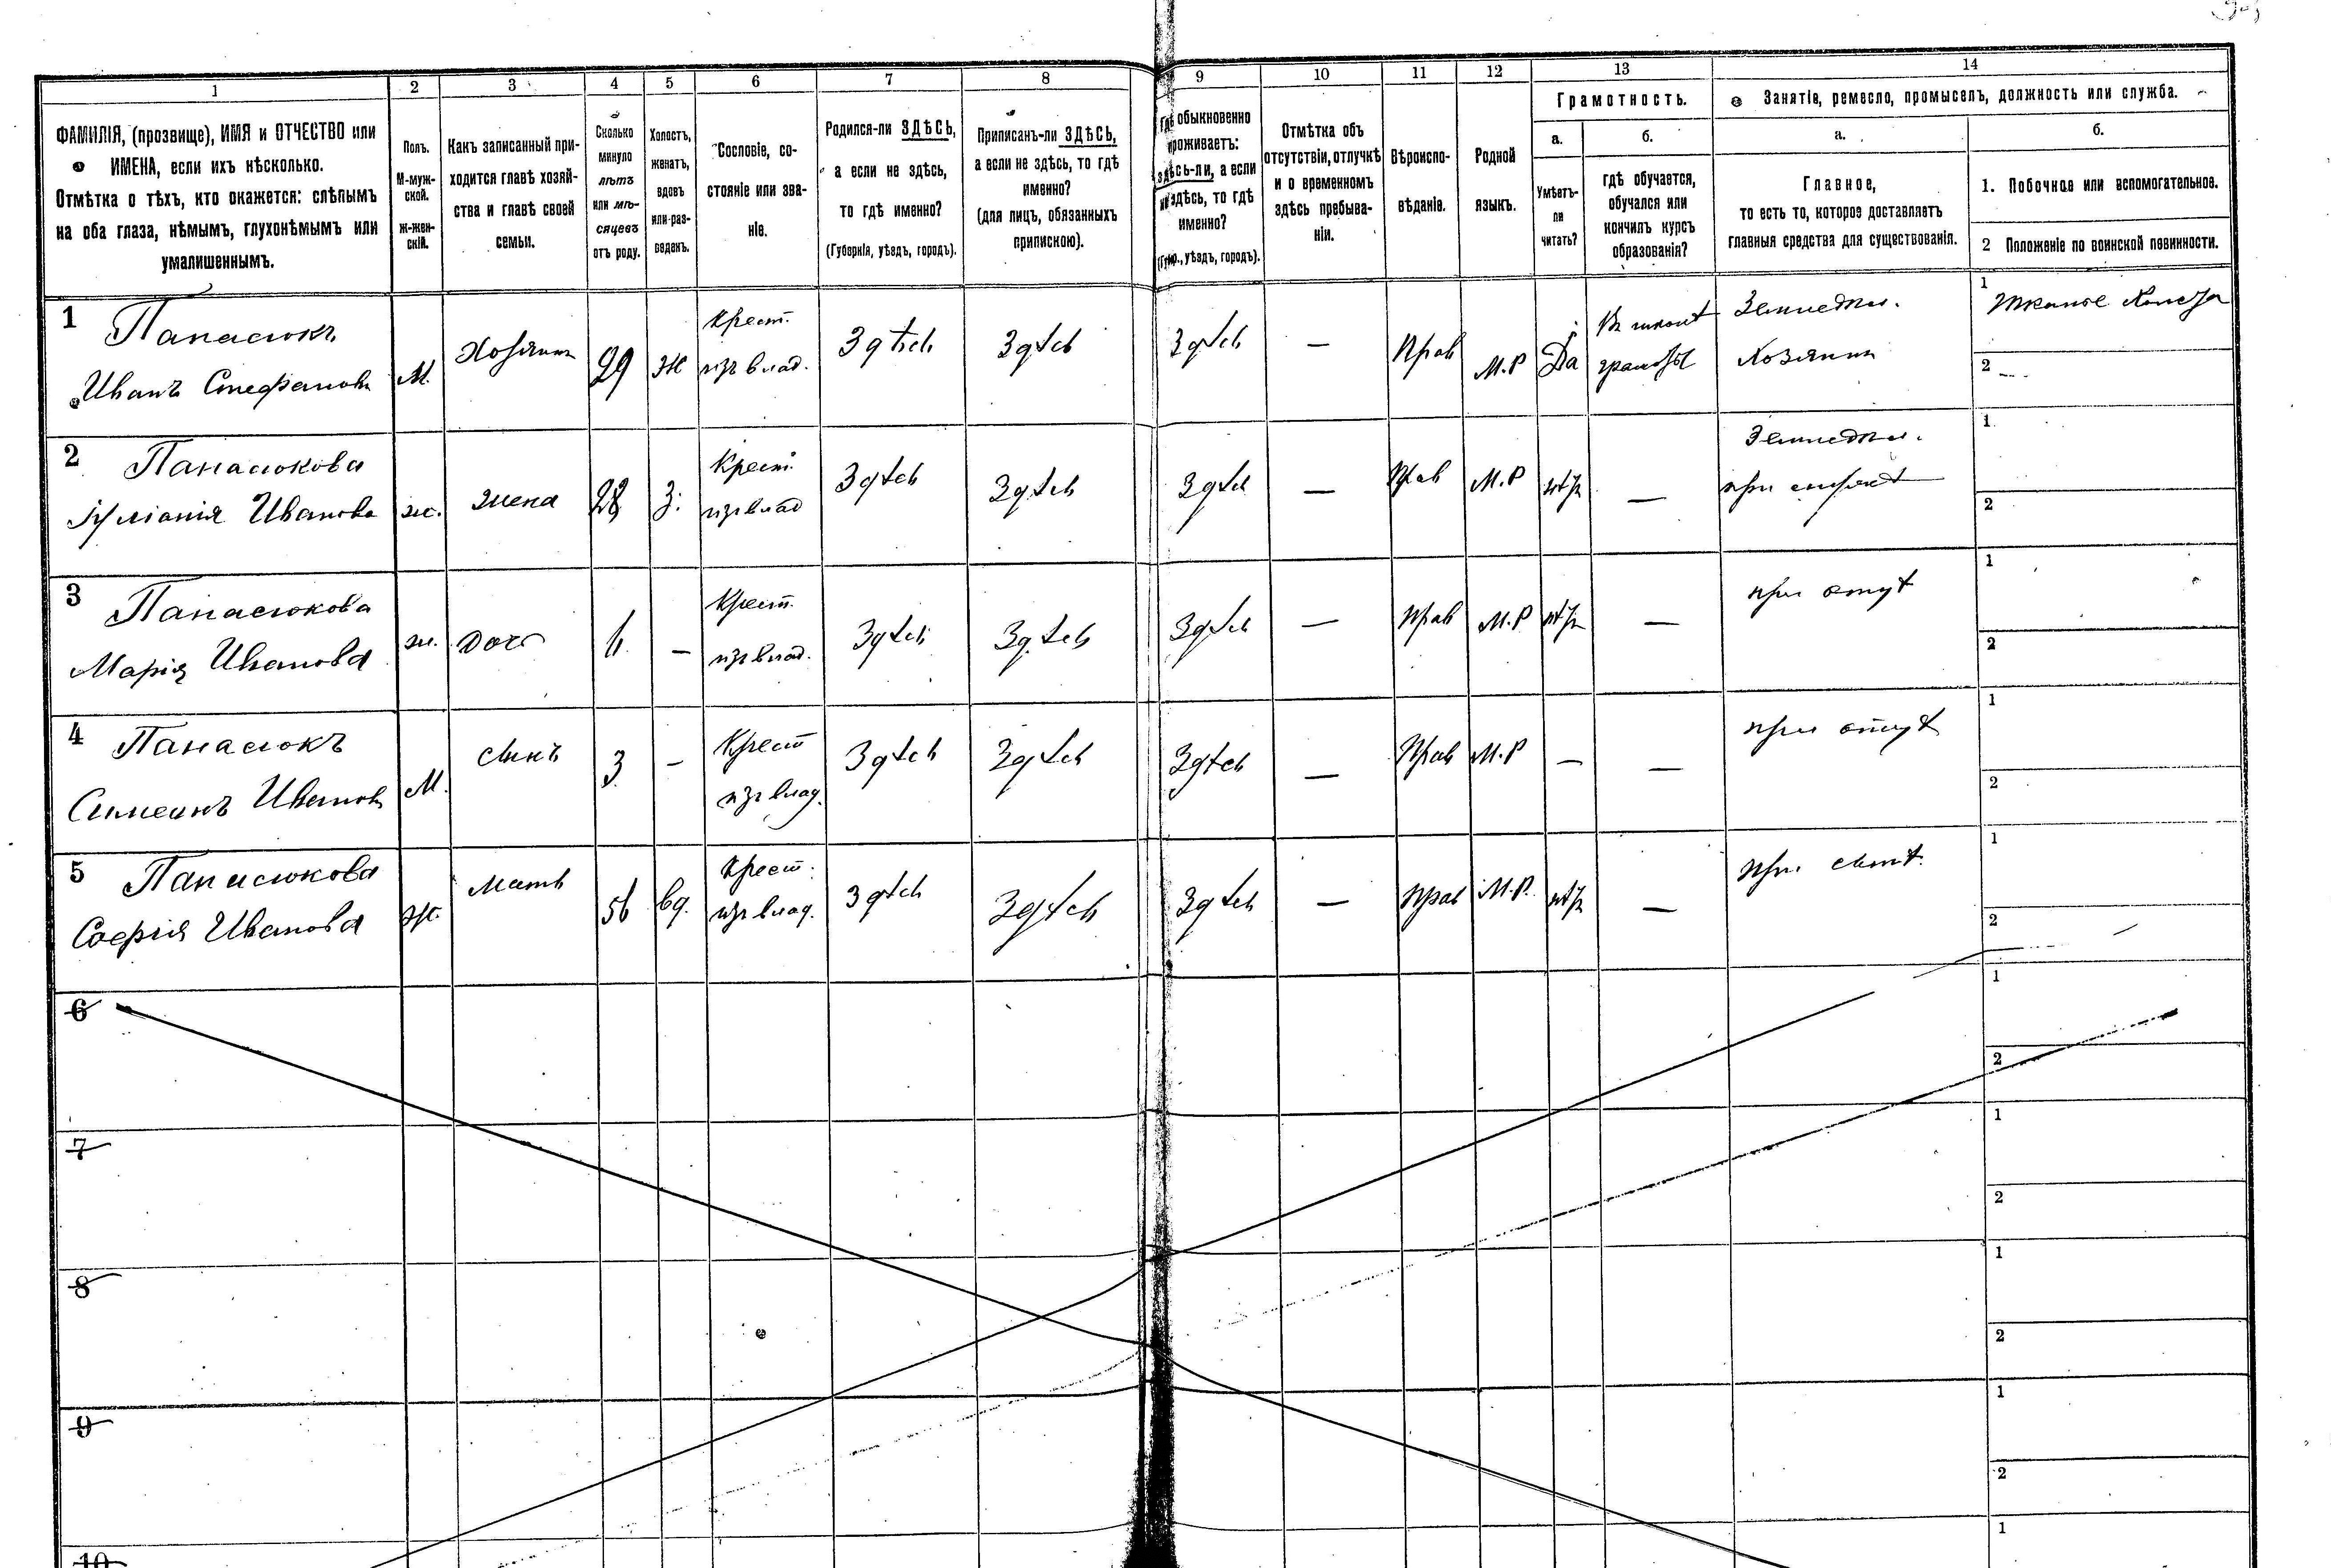 1 2 3 4 5 6 7 8 9 10 11 12 13 14
ФАМИЛІЯ, (прозвище), ИМЯ и ОТЧЕСТВО или
ИМЕНА, если ихъ нѣсколько.
Отмѣтка о тѣхъ, кто окажется: слѣпымъ
на оба глаза, нѣмымъ, глухонѣмымъ или
умалишеннымъ.
Полъ.
М-муж-
ской.
Ж-жен-
скій.
Какъ записанный при-
ходится главѣ хозяй-
ства и главѣ своей
семьи.
Сколько
минуло
лѣтъ
или мѣ-
сяцевъ
отъ роду.
Холостъ,
женатъ,
вдовъ
или раз-
веденъ.
Сословіе, со-
стояніе или зва-
ніе.
Родился-ли ЗДѢСЬ,
а если не здѣсь,
то гдѣ именно?
(Губернія, уѣздъ, городъ).
Приписанъ-ли ЗДѢСЬ,
а если не здѣсь, то гдѣ
именно?
(для лицъ, обязанныхъ
припискою).
Гдѣ обыкновенно
проживаетъ:
здѣсь-ли, а если
не здѣсь, то гдѣ
именно?
(Губ., уѣздъ, городъ).
Отмѣтка объ
отсутствіи, отлучкѣ
и о временномъ
здѣсь пребыва-
ніи.
Вѣроиспо-
вѣданіе.
Родной
языкъ.
Грамотность.
а.
Умѣетъ-
ли
читать?
б.
гдѣ обучается,
обучался или
кончилъ курсъ
образованія?
Занятіе, ремесло, промыселъ, должность или служба.
а.
Главное,
то есть то, которое доставляетъ
главныя средства для существованія.
б.
1. Побочное или вспомогательное.
2 Положеніе по воинской повинности.
1 Панасюкъ
Иванъ Стефановъ
М.
Хозяинъ
29
Ж
Крест.
изъ влад.
Здѣсь
Здѣсь
Здѣсь
—
Прав
М.Р
Да
Въ школѣ
грамоты
Земледѣл.
Хозяинъ
1
2 —
2 Панасюкова
Иванова
ж.
жена
28
З.
Крест.
изъ влад
Здѣсь
Здѣсь
Здѣсь
—
Прав
М.Р
нѣтъ
—
Земледѣл.
при
1
2
3 Панасюкова
Марія Иванова
ж.
дочь
—
Крест.
изъ влад.
Здѣсь
Здѣсь
Здѣсь
—
Прав
М.Р
нѣтъ
—
при отцѣ
1
2
4 Панасюкъ
Симеонъ Ивановъ
М.
сынъ
3
—
Крест
изъ влад.
Здѣсь
Здѣсь
Здѣсь
—
Прав
М.Р
—
—
при отцѣ
1
2
5 Панасюкова
Софія Иванова
Ж.
Мать
56
вд.
Крест.
изъ влад.
Здѣсь
Здѣсь
Здѣсь
—
Прав
М.Р.
нѣтъ
—
при сынѣ.
1
2
6
1
2
7
1
2
8
1
2
9
1
2
10
1